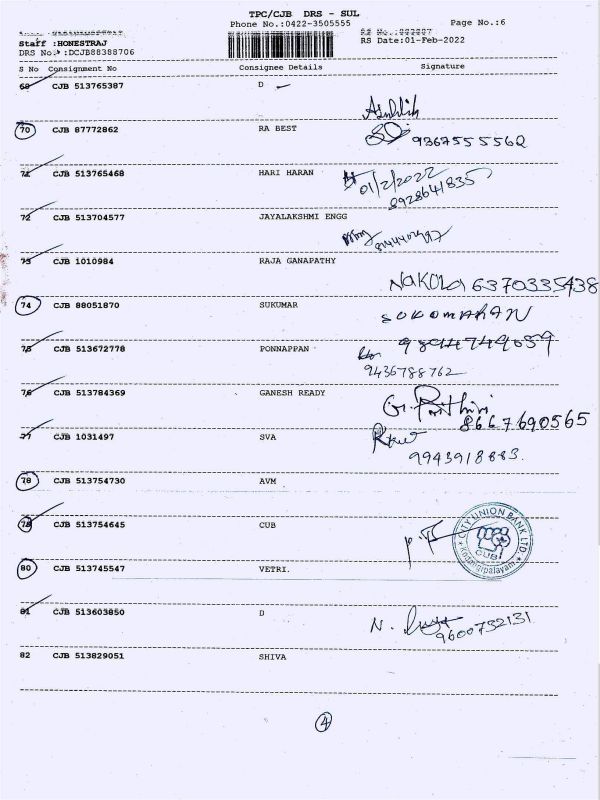 TPC/CJB DRS - SUL
Phone No.:0422-3505555 Page No.:6
Staff :HONESTRAJ RS Date:01-Feb-2022
DRS No. :DCJB88388706
S No Consignment No Consignee Details Signature
69 CJB 513765387 D
70 CJB 87772862 RA BEST
9367555562
71 CJB 513765468 HARI HARAN
01/2/2022
8928641835
72 CJB 513704577 JAYALAKSHMI ENGG
73 CJB 1010984 RAJA GANAPATHY
6370335438
74 CJB 88051870 SUKUMAR
SUKUMARAN
75 CJB 513672778 PONNAPPAN
9436788762
76 CJB 513784369 GANESH READY
8667690565
77 CJB 1031497 SVA
9943918883.
78 CJB 513754730 AVM
79 CJB 513754645 CUB
CITY UNION BANK LTD.
CUB
80 CJB 513745547 VETRI.
81 CJB 513603850 D
N.
9600732131
82 CJB 513829051 SHIVA
4